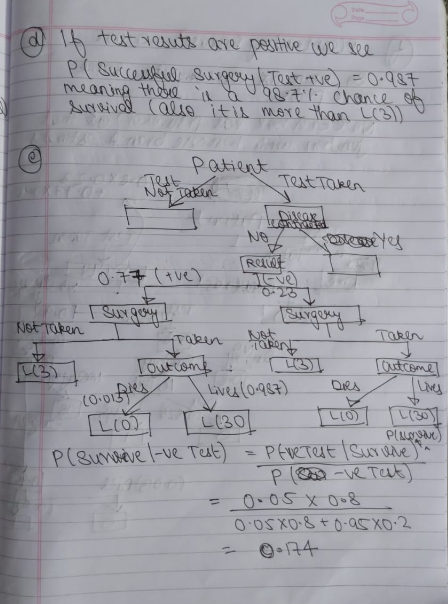 (d) If test results are positive we see
P(Successful surgery/Test +ve) = 0.987
meaning there is a 98.7% chance of
survival (also it is more than L(3))
(e)
Patient
Test
Not Taken
Test Taken
Disease
contracted
No
Yes
Result
0.77 (+ve)
(-ve)
0.23
Surgery
Surgery
Not Taken
Taken
Not
Taken
Taken
L(3)
Outcome
L(3)
Outcome
Dies
(0.013)
Lives(0.987)
Dies
Lives
L(0)
L(30
L(0)
L(30)
P(survive)
P(Survive/-ve Test) = P(-ve Test/Survive)
P( -ve Test)
= 0.05 x 0.8
0.05x0.8 + 0.95x0.2
= 0.174